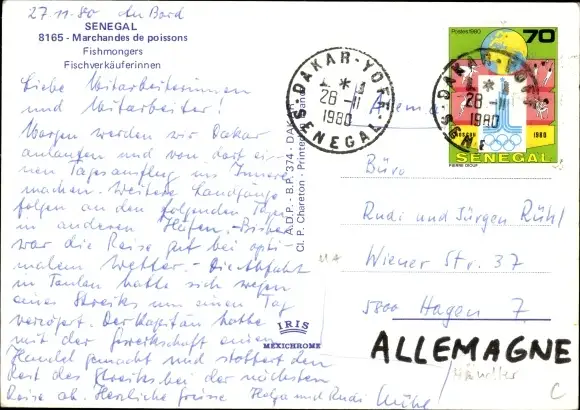 27.11.80 An Bord
SENEGAL
8165 - Marchandes de poissons
Fishmongers
Fischverkäuferinnen
Liebe Mitarbeiterinnen
und Mitarbeiter!
Morgen werden wir Dakar
anlaufen und von dort ei-
nen Tagesausflug ins Innere
machen. Weitere Landgänge
folgen an den folgenden Tagen
in anderen Häfen. - Bisher
war die Reise gut bei opti-
malem Wetter. - Die Abfahrt
in Toulon hatte sich wegen
eines Streikes um einen Tag
verzögert. Der Kapitän hatte
mit der Gewerkschaft einen
Handel gemacht und stottert den
Rest des Streikes bei der nächsten
Reise ab. Herzliche Grüsse Helga und Rudi Rühl
A.D.P. - B.P. 374 - DAKAR
Cl. P. Chareton - Printed
IRIS
MEXICHROME
DAKAR-YOFF
28-11
1980
SENEGAL
DAKAR-YOFF
28-11
1980
Postes 1980
70
MOSCOU 1980
SÉNÉGAL
Büro
Rudi und Jürgen Rühl
Wiener Str. 37
5800 Hagen 7
ALLEMAGNE
Händler
C